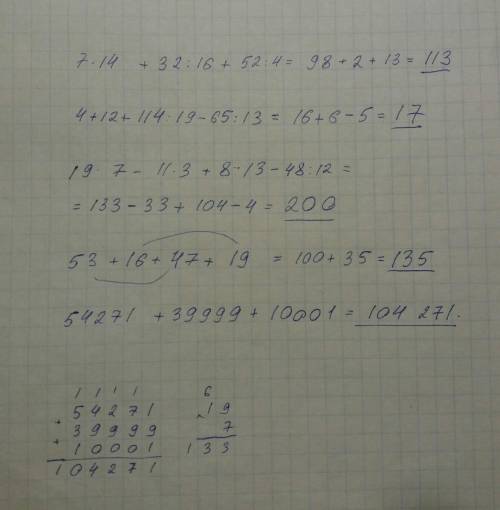 7·14 + 32:16 + 52:4 = 98 + 2 + 13 = 113
4+12+114:19-65:13 = 16+6-5 = 17
19·7 - 11·3 + 8·13 - 48:12 =
= 133 - 33 + 104 - 4 = 200
53 + 16 + 47 + 19 = 100 + 35 = 135
54271 + 39999 + 10001 = 104 271.
1 1 1 1
54271
+ 39999
+ 10001
104271
6
× 19
7
133